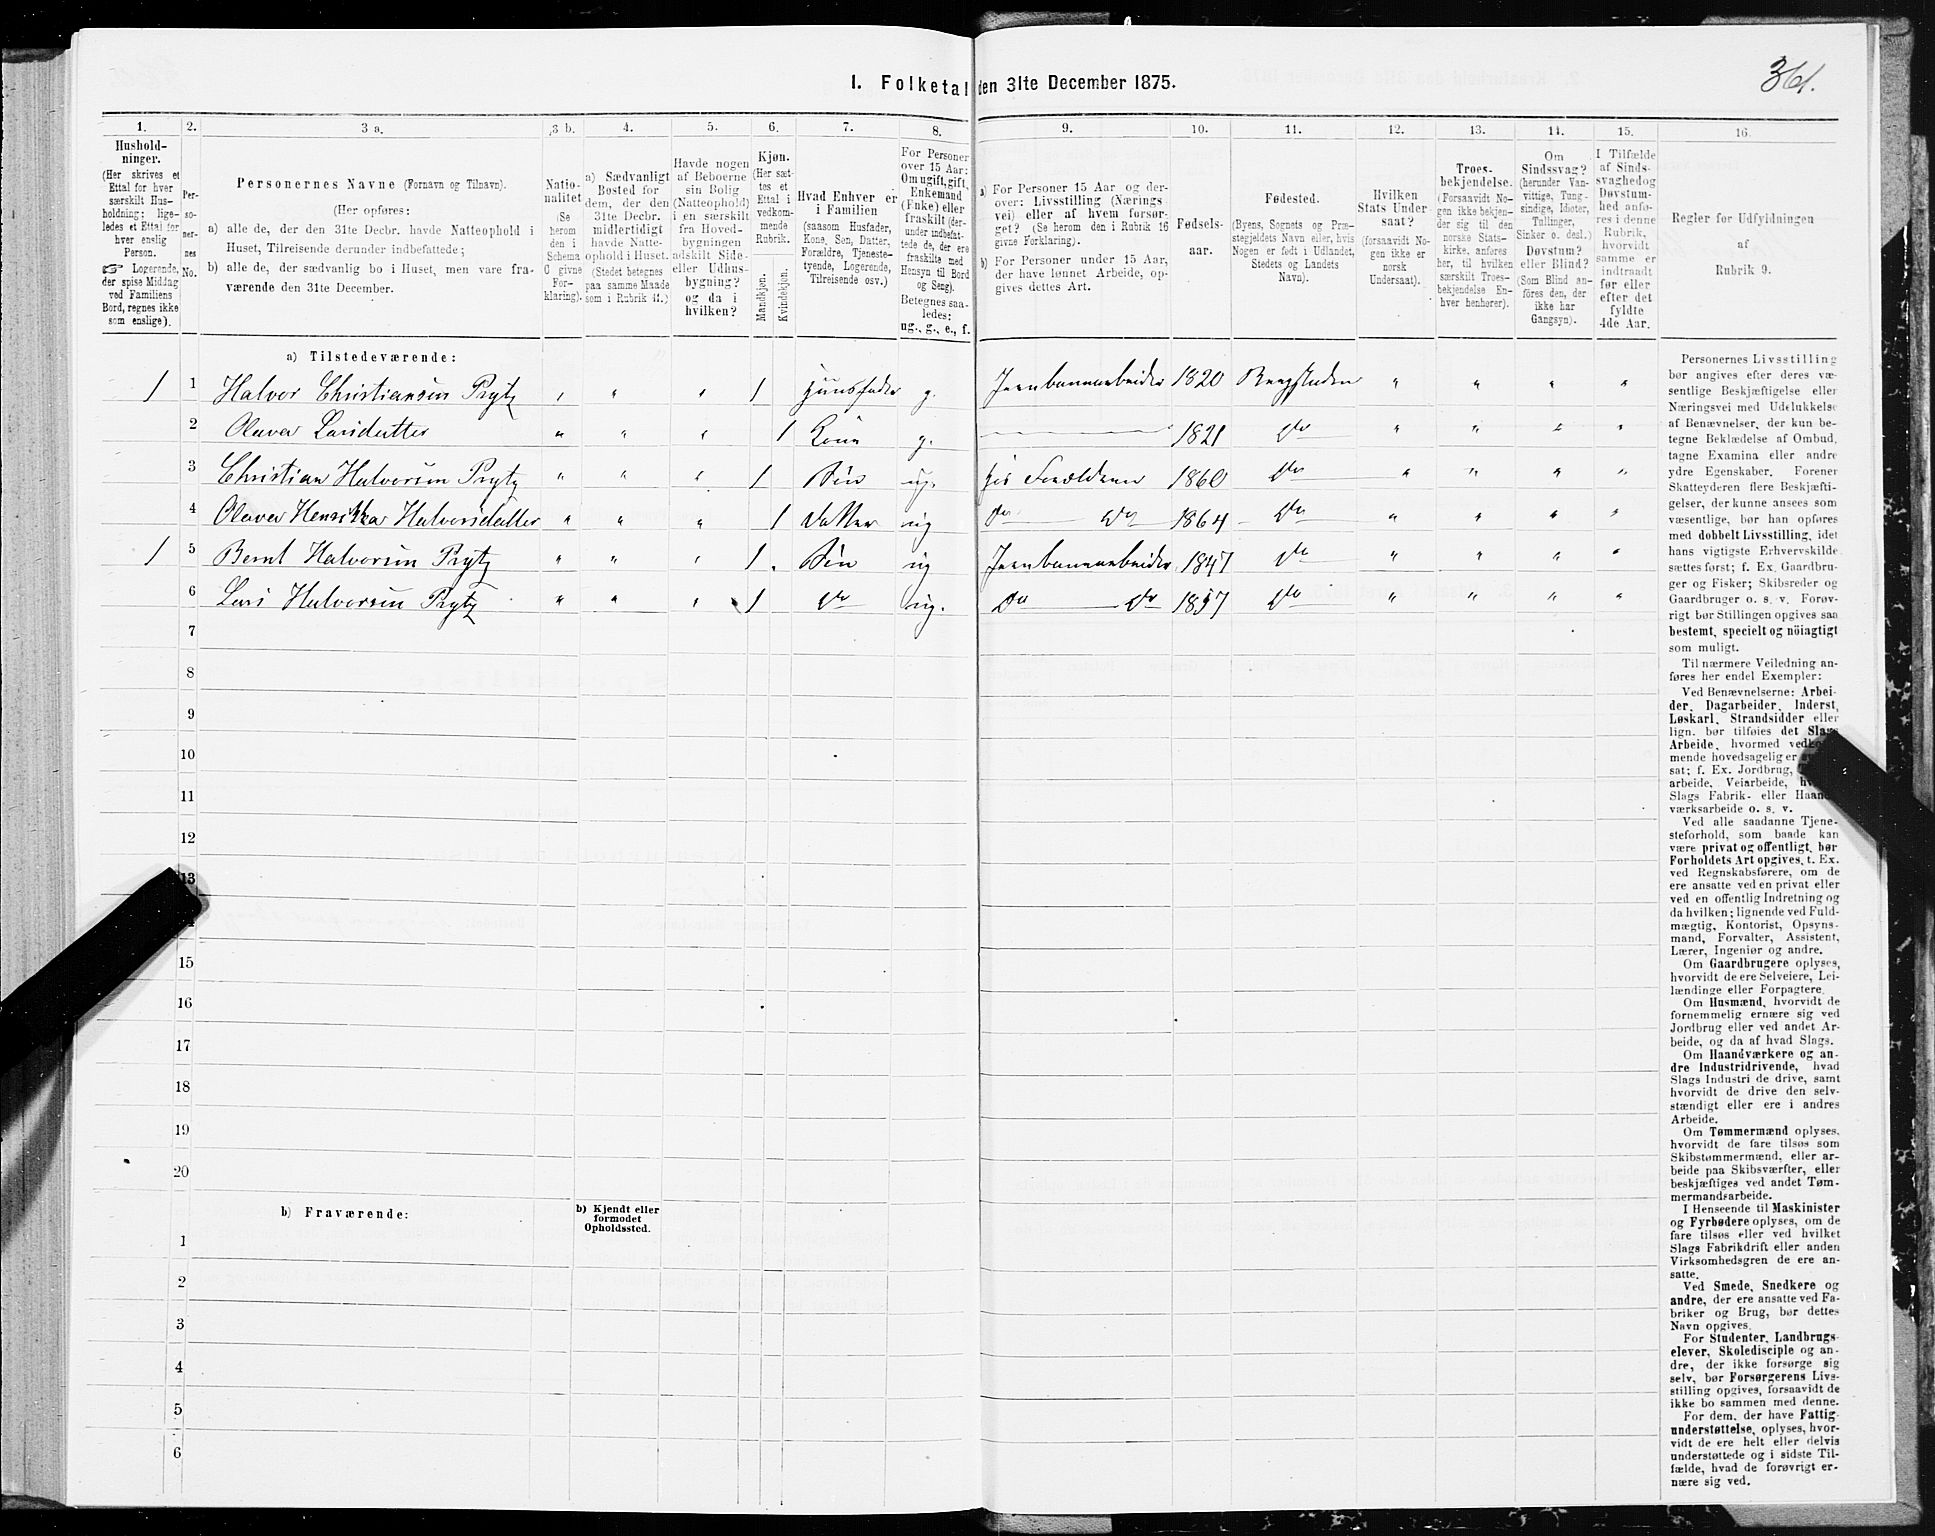 361.
1. Folketal den 31te December 1875.
1. 2. 3 a. 3 b. 4. 5. 6. 7. 8. 9. 10. 11. 12. 13. 14. 15. 16.
Hushold-
ninger.
(Her skrives et
Ettal for hver
særskilt Hus-
holdning; lige-
ledes et Ettal for
hver enslig
Person.
☞ Logerende,
der spise Middag
ved Familiens
Bord, regnes ikke
som enslige).
Per-
so-
ner-
nes
No.
Personernes Navne (Fornavn og Tilnavn).
(Her opføres:
a) alle de, der den 31te Decbr. havde Natteophold i
Huset, Tilreisende derunder indbefattede;
b) alle de, der sædvanlig bo i Huset, men vare fra-
værende den 31te December.
Natio-
nalitet
(Se
herom
den i
Schema
C givne
For-
klaring).
a) Sædvanligt
Bosted for
dem, der den
31te Decbr.
midlertidigt
havde Natte-
ophold i Huset.
(Stedet betegnes
paa samme Maade
som i Rubrik 11.)
Havde nogen
af Beboerne
sin Bolig
(Natteophold)
i en særskilt
fra Hoved-
bygningen
adskilt Side-
eller Udhus-
bygning?
og da i
hvilken?
Kjøn.
(Her sæt-
tes et
Ettal i
vedkom-
mende
Rubrik.
Mandkjøn.
Kvindekjøn.
Hvad Enhver er
i Familien
(saasom Husfader,
Kone, Søn, Datter,
Forældre, Tjeneste-
tyende, Logerende,
Tilreisende osv.)
For Personer
over 15 Aar:
Om ugift, gift,
Enkemand
(Enke) eller
fraskilt (der-
under indbefat-
tede de, der ere
fraskilte med
Hensyn til Bord
og Seng).
Betegnes saa-
ledes:
ug., g., e., f.
a) For Personer 15 Aar og der-
over: Livsstilling (Nærings-
vei) eller af hvem forsør-
get? (Se herom den i Rubrik 16
givne Forklaring).
b) For Personer under 15 Aar,
der have lønnet Arbeide, op-
gives dettes Art.
Fødsels-
aar.
Fødested.
(Byens, Sognets og Præ-
stegjeldets Navn eller, hvis
Nogen er født i Udlandet,
Stedets og Landets
Navn).
Hvilken
Stats Under-
saat?
(forsaavidt No-
gen ikke er
norsk
Undersaat).
Troes-
bekjendelse.
(Forsaavidt No-
gen ikke bekjen-
der sig til den
norske Stats-
kirke, anføres
her, til hvilken
særskilt Troes-
bekjendelse En-
hver henhører).
Om
Sindssvag?
(herunder Van-
vittige, Tung-
sindige, Idioter,
Tullinger,
Sinker o. desl.)
Døvstum?
eller Blind?
(Som Blind an-
føres den, der
ikke har
Gangsyn).
I Tilfælde
af Sinds-
svaghed og
Døvstum-
hed anfø-
res i denne
Rubrik,
hvorvidt
samme er
indtraadt
før eller
efter det
fyldte
4de Aar.
Regler for Udfyldningen
af
Rubrik 9.
a) Tilstedeværende:
1 1 Halvor Christiansen Prytz " " " 1 Huusfader g. Jernbanearbeider 1820 Ringsaker " " " "
2 Olava Larsdatter " " " 1 Kone g. 1821 do " " " "
3 Christian Halvorsen Prytz " " " 1 Søn ug. hos Forældrene 1860 do " " " "
4 Olava Henrikka Halvorsdatter " " " 1 Datter ug do do 1864 do " " " "
1 5 Bernt Halvorsen Prytz " " " 1 Søn ug Jernbanearbeider 1847 do " " " "
6 Lars Halvorsen Prytz " " " 1 do ug. do do 1857 do " " " "
7
8
9
10
11
12
13
15
16
17
18
19
20
b) Fraværende:
b) Kjendt eller
formodet
Opholdssted.
1
2
3
4
5
6
Personernes Livsstilling
bør angives efter deres væ-
sentlige Beskjæftigelse eller
Næringsvei med Udelukkelse
af Benævnelser, der kun be-
tegne Beklædelse af Ombud,
tagne Examina eller andre
ydre Egenskaber. Forener
Skatteyderen flere Beskjæfti-
gelser, der kunne ansees som
væsentlige, bør han opføres
med dobbelt Livsstilling, idet
hans vigtigste Erhvervskilde
sættes først; f. Ex. Gaardbru-
ger og Fisker; Skibsreder og
Gaardbruger o. s. v. Forøv-
rigt bør Stillingen opgives saa
bestemt, specielt og nöiagtigt
som muligt.
Til nærmere Veiledning an-
føres her endel Exempler:
Ved Benævnelserne: Arbei-
der, Dagarbeider, Inderst,
Løskarl, Strandsidder eller
lign. bør tilføies det Slags
Arbeide, hvormed vedkom-
mende hovedsagelig er
sat; f. Ex. Jordbrug,
arbeide, Veiarbeide,
Slags Fabrik- eller Haand-
værksarbeide o. s. v.
Ved alle saadanne Tjene-
steforhold, som baade kan
være privat og offentligt, bør
Forholdets Art opgives, t. Ex.
ved Regnskabsførere, om de
ere ansatte ved en privat eller
ved en offentlig Indretning og
da hvilken; lignende ved Fuld-
mægtig, Kontorist, Opsyns-
mand, Forvalter, Assistent,
Lærer, Ingeniør og andre.
Om Gaardbrugere oplyses,
hvorvidt de ere Selveiere, Lei-
lændinge eller Forpagtere.
Om Husmænd, hvorvidt de
fornemmelig ernære sig ved
Jordbrug eller ved andet Ar-
beide, og da af hvad Slags.
Om Haandværkere og an-
dre Industridrivende, hvad
Slags Industri de drive, samt
hvorvidt de drive den selv-
stændigt eller ere i andres
Arbeide.
Om Tømmermænd oplyses,
hvorvidt de fare tilsøs som
Skibstømmermænd, eller ar-
beide paa Skibsværfter, eller
beskjæftiges ved andet Tøm-
mermandsarbeide.
I Henseende til Maskinister
og Fyrbødere oplyses, om de
fare tilsøs eller ved hvilket
Slags Fabrikdrift eller anden
Virksomhedsgren de ere an-
satte.
Ved Smede, Snedkere og
andre, der ere ansatte ved Fa-
briker og Brug, bør dettes
Navn opgives.
For Studenter, Landbrugs-
elever, Skoledisciple og an-
dre, der ikke forsørge sig
selv, bør Forsørgerens Livs-
stilling opgives, forsaavidt de
ikke bo sammen med denne.
For dem, der have Fattig-
understøttelse, oplyses, hvor-
vidt de ere helt eller delvis
understøttede og i sidste Til-
fælde, hvad de forøvrigt er-
nære sig ved.